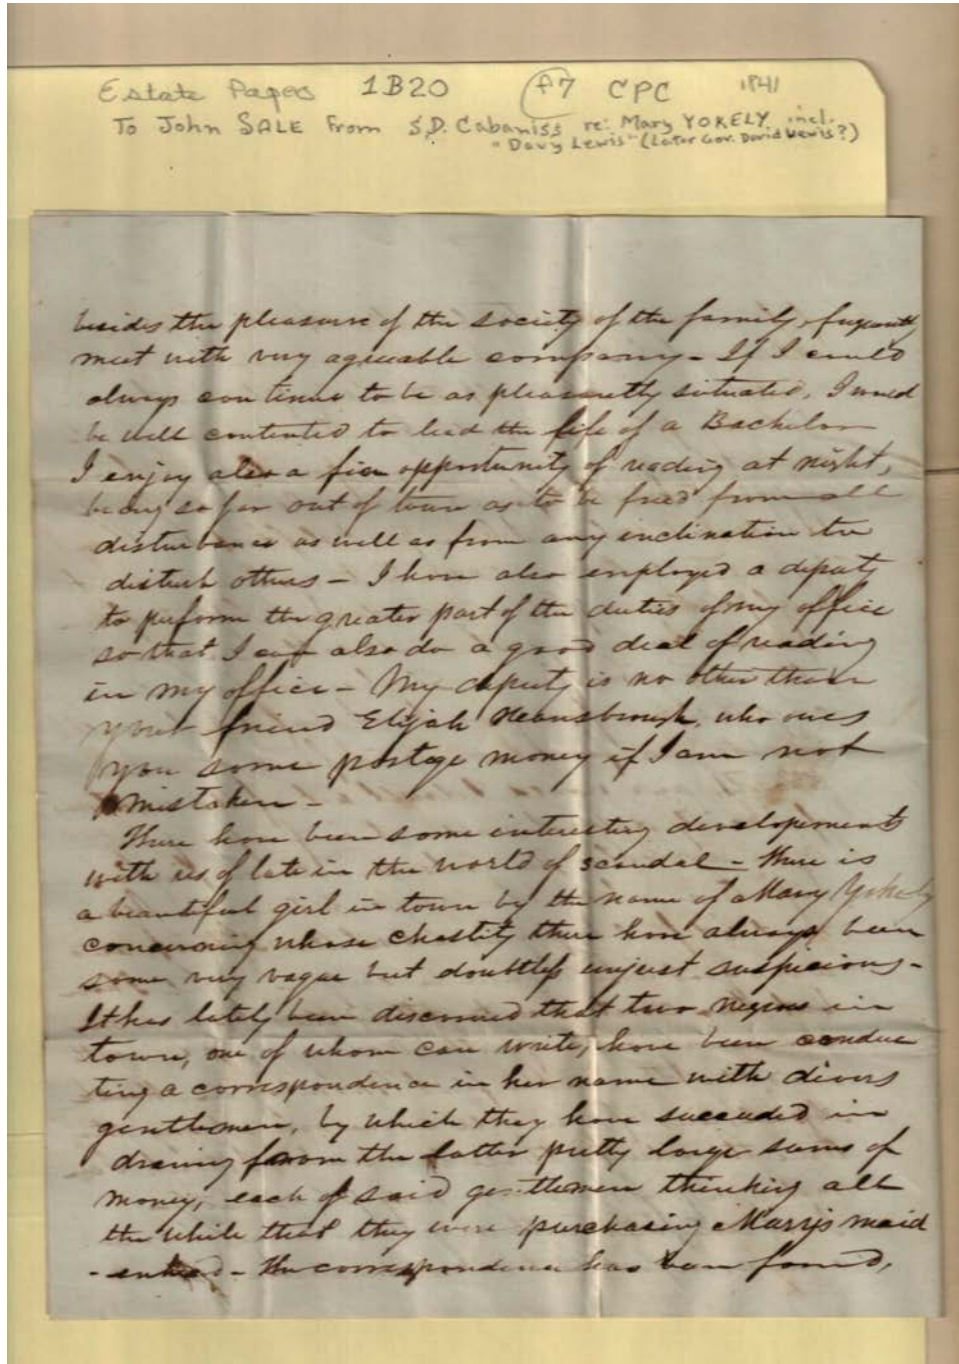 Estate Papers 1B20 F7 CPC 1841
To John SALE From S.D. Cabaniss re: Mary YOKELY incl.
"Davy Lewis" (Later Gov. David Lewis?)
besides the pleasure of the society of the family, frequently
meet with very agreeable company - If I could
always continue to be as pleasantly situated, I would
be well contented to lead the life of a Bachelor
I enjoy also a fine opportunity of reading at night,
being so far out of town as to be freed from all
disturbance as well as from any inclination to
disturb others - I have also employed a deputy
to perform the greater part of the duties of my office
so that I can also do a good deal of reading
in my office - My deputy is no other than
your friend Elijah Hansbrough, who owes
you some postage money if I am not
mistaken -
There have been some interesting developements
with us of late in the world of scandal - There is
a beautiful girl in town by the name of Mary Yokely
concerning whose chastity there have always been
some very vague but doubtless unjust suspicions -
It has lately been discovered that two negroes in
town, one of whom can write, have been conduc
ting a correspondence in her name with divers
gentlemen, by which they have succeeded in
drawing from the latter pretty large sums of
money, each of said gentlemen thinking all
the while that they were purchasing Mary's maid
- The correspondence has been found,